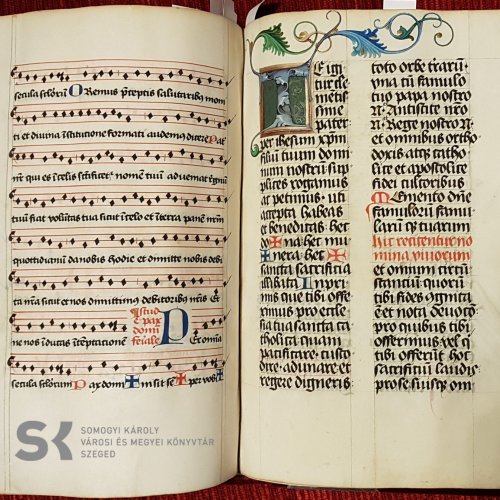 secula seculorum Oremus preceptis salutaribus moni
ti et divina institutione formati audemus dicere Pat
er noster qui es in celis sanctificetur nomen tuum adveniat regnum
tuum fiat voluntas tua sicut in celo et in terra panem nostrum
quotidianum da nobis hodie et dimitte nobis debi
ta nostra sicut et nos dimittimus debitoribus nostris Et
ne nos inducas in temptationem
Per omnia
secula seculorum Pax domini ✠ sit sem ✠ per vobis
Te igi
tur cle
pater
per ihesum xpm
filiu tuum domi
num nostru sup
plices rogamus
ac petimus. uti
accepta habeas
et benedicas. hec
do✠na hec mu
✠nera. hec ✠
sancta sacrificia
illibata Inpri
mis que tibi offe
rimus pro eccle
sia tua sancta ca
tholica quam
pacificare. custo
dire. adunare et
regere digneris
toto orbe terrarum.
una cum famulo
tuo papa nostro
N. Antistite nro
N. Rege nostro N
et omnibus ortho
doxis atq catho
lice et apostolice
fidei cultoribus
Memento dne
famulorum famu
larumq tuarum
hic recitentur no
mina vivorum
et omnium circu
stancium quorum
tibi fides cognita
est et nota devotio
pro quibus tibi
offerimus vel qi
tibi offerunt hoc
sacrificium laudis
pro se suisq om
SOMOGYI KÁROLY
VÁROSI ÉS MEGYEI KÖNYVTÁR
SZEGED